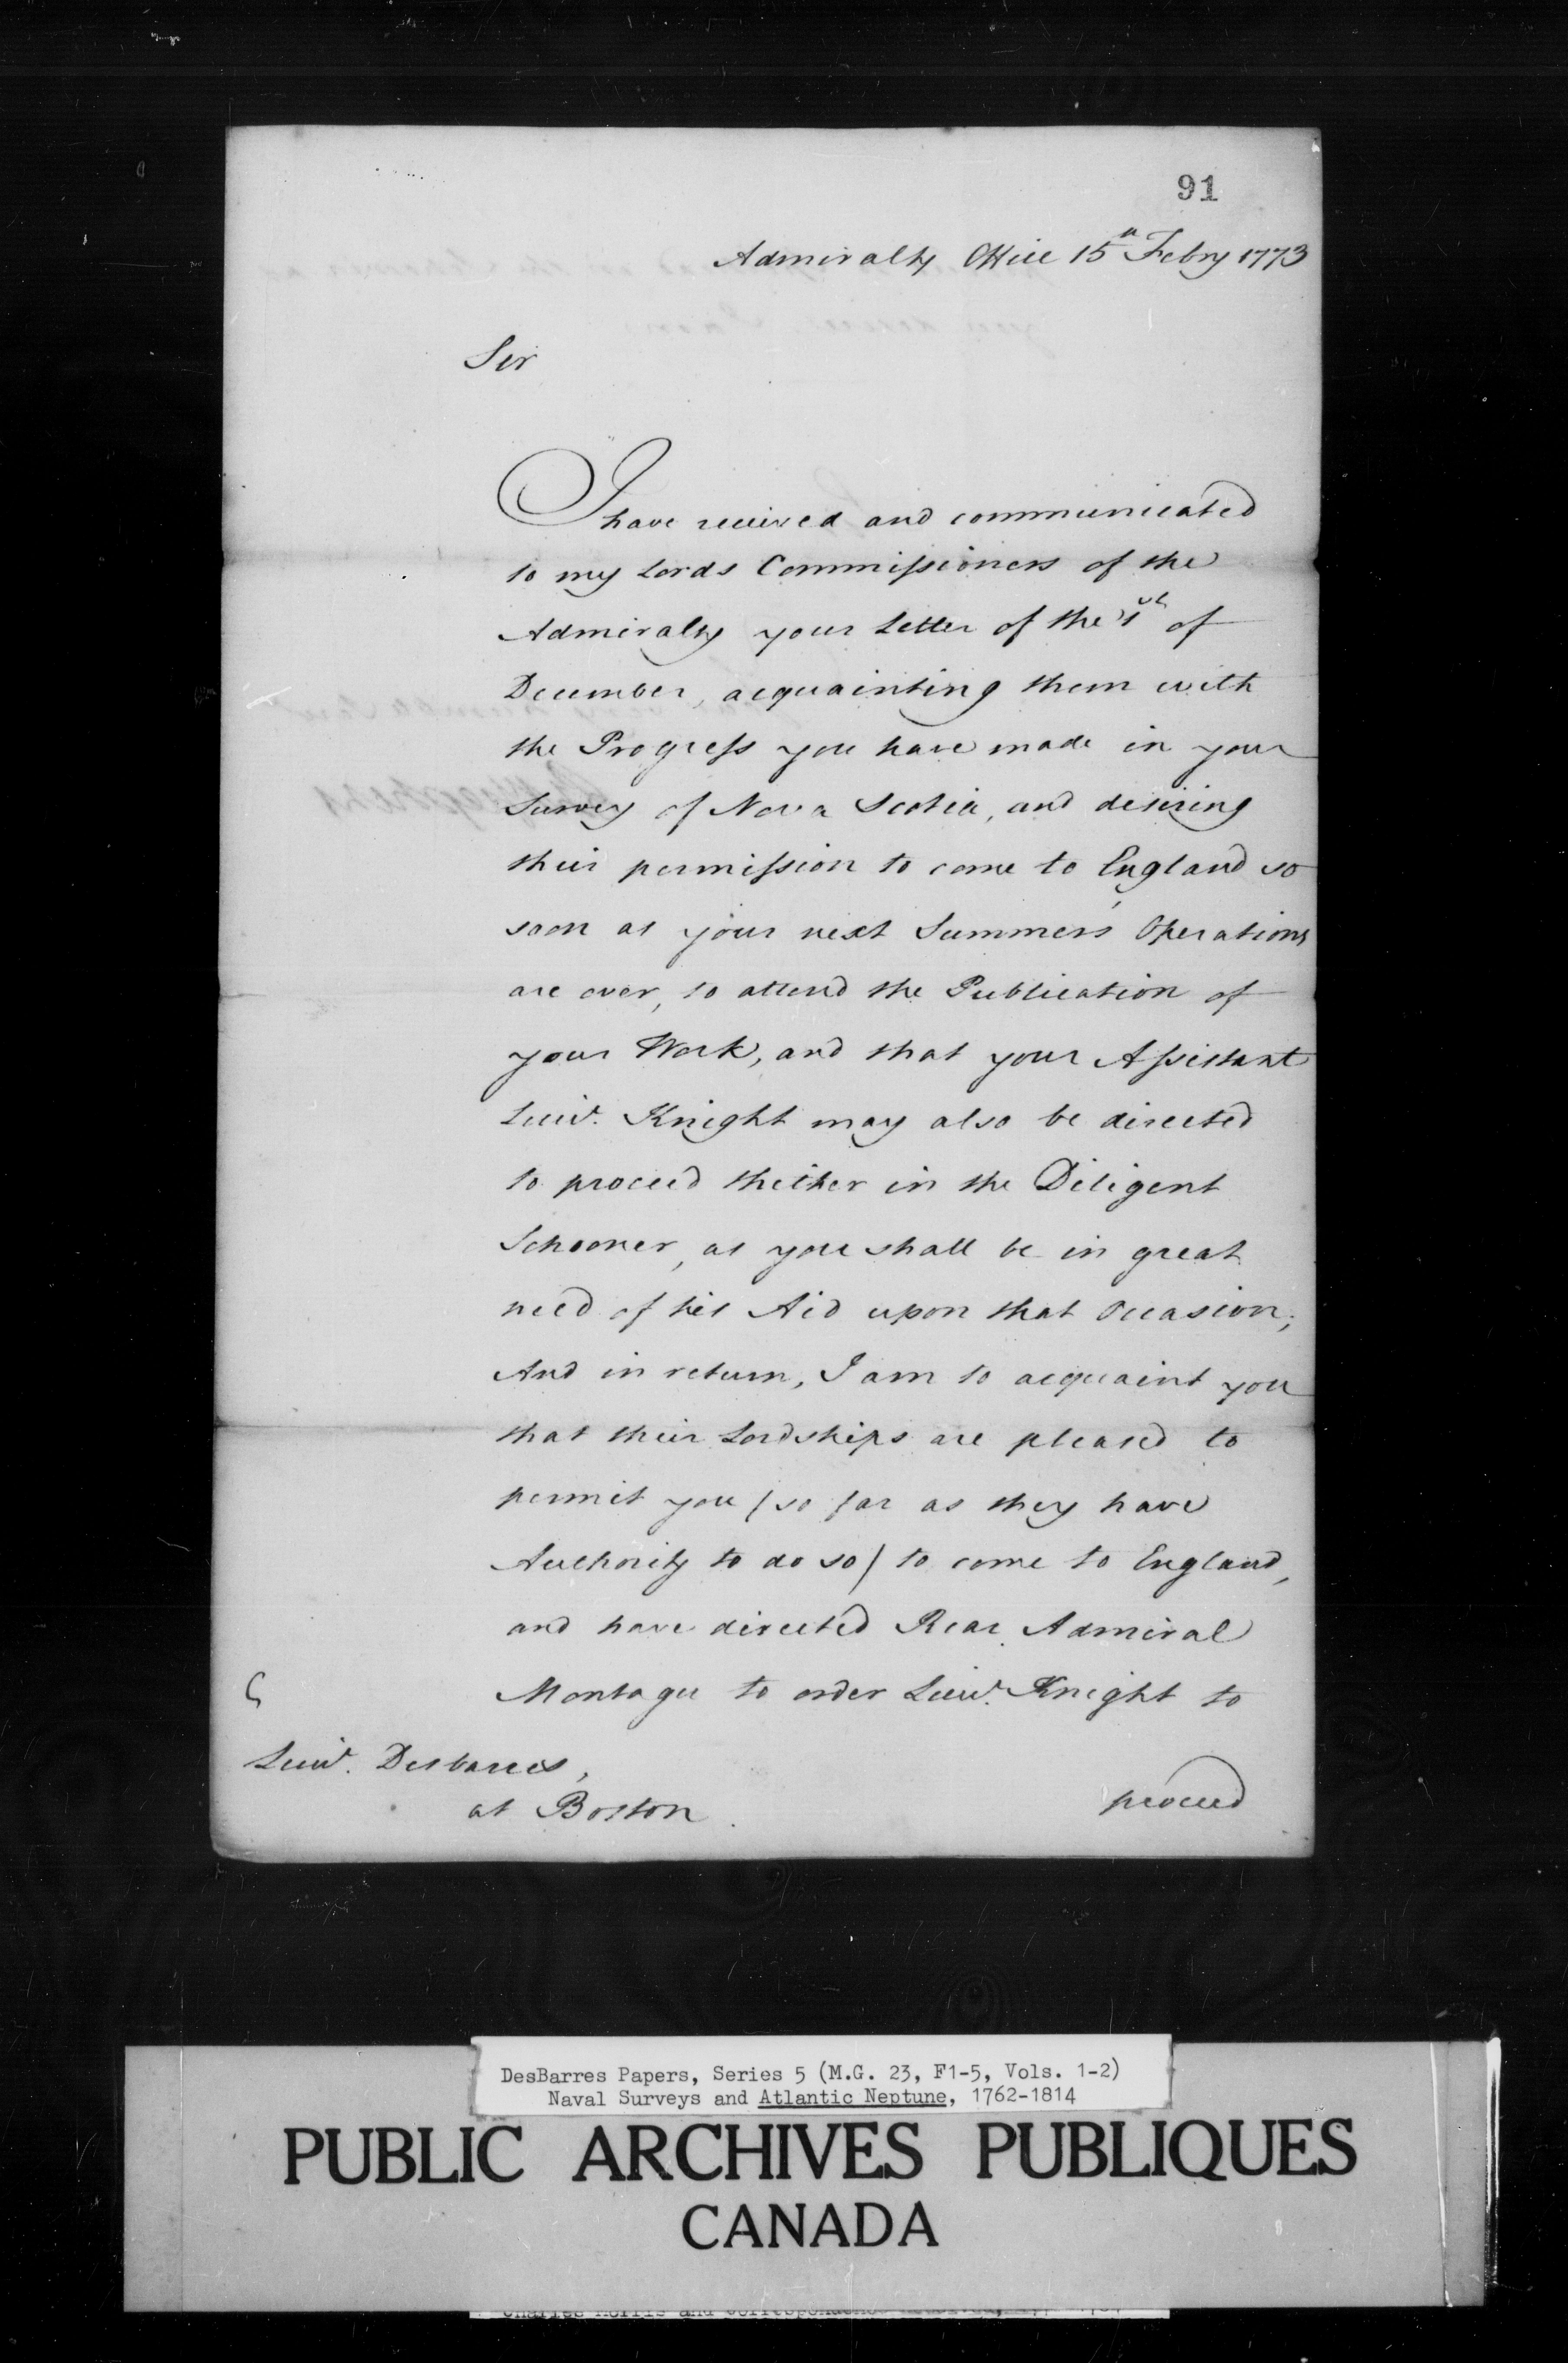 91
Admiralty Office 15th Febry 1773
Sir
I have received and communicated
to my Lords Commissioners of the
Admiralty your Letter of the 1st of
December, acquainting them with
the Progress you have made in your
Survey of Nova Scotia, and desiring
their permission to come to England so
soon as your next Summer's Operations
are over, to attend the Publication of
your Work, and that your Assistant
Lieut. Knight may also be directed
to proceed thither in the Diligent
Schooner, as you shall be in great
need of his Aid upon that Occasion;
And in return, I am to acquaint you
that their Lordships are pleased to
permit you /so far as they have
Authority to do so/ to come to England,
and have directed Rear Admiral
Montagu to order Lieut. Knight to
Lieut. Desbarres,
at Boston.
proceed
DesBarres Papers, Series 5 (M.G. 23, F1-5, Vols. 1-2)
Naval Surveys and Atlantic Neptune, 1762-1814
PUBLIC ARCHIVES PUBLIQUES
CANADA